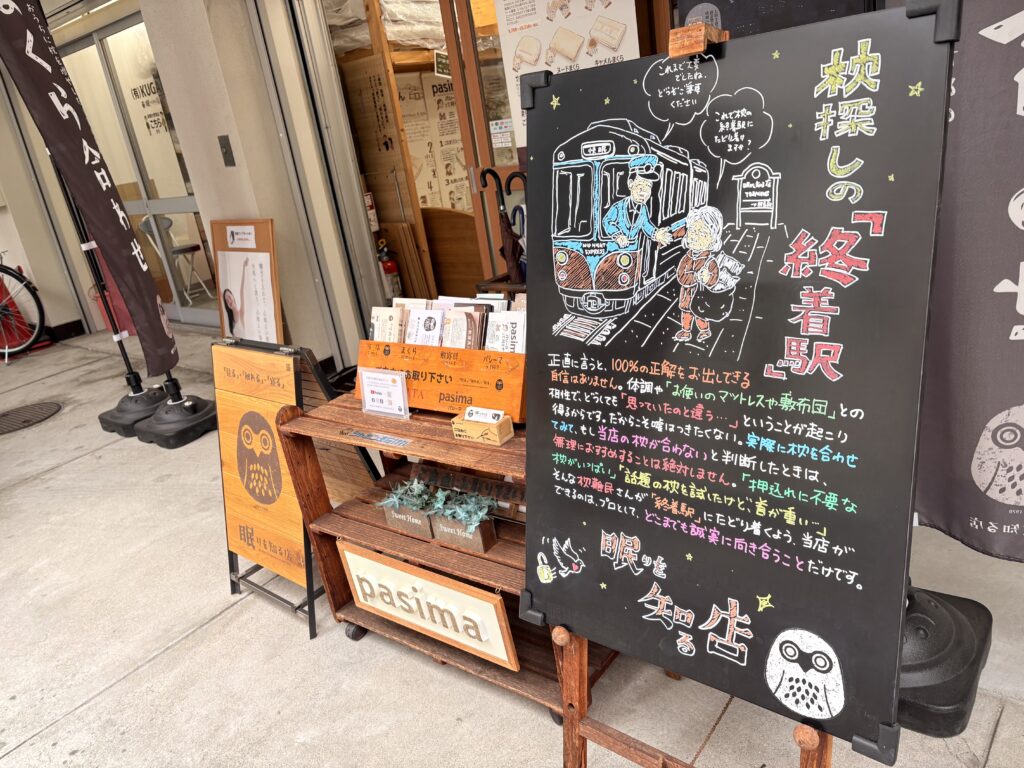 枕探しの
「終着駅」
これまで大変
でしたね、
どうぞご乗車
ください
これで枕の
終着駅に
たどり着け
ますか?
正直に言うと、100%の正解をお出しできる
自信はありません。体調や「お使いのマットレスや敷布団」との
相性で、どうしても「思っていたのと違う…」ということが起こり
得るからです。だからこそ嘘はつきたくない。実際に枕を合わせ
てみて、もし当店の枕が合わないと判断したときは、
無理におすすめすることは絶対しません。「押込れに不要な
枕がいっぱい」「話題の枕を試したけど、首が重い…」
そんな枕難民さんが「終着駅」にたどり着くよう、当店が
できるのは、プロとして、どこまでも誠実に向き合うことだけです。
眠りを
知る
店
くら合わせ
(有)KUG
pasima
ヌードまくら
キャメルまくら
お取り下さい
pasima
Sweet Home
Sweet Home
pasima
眠りを知る店